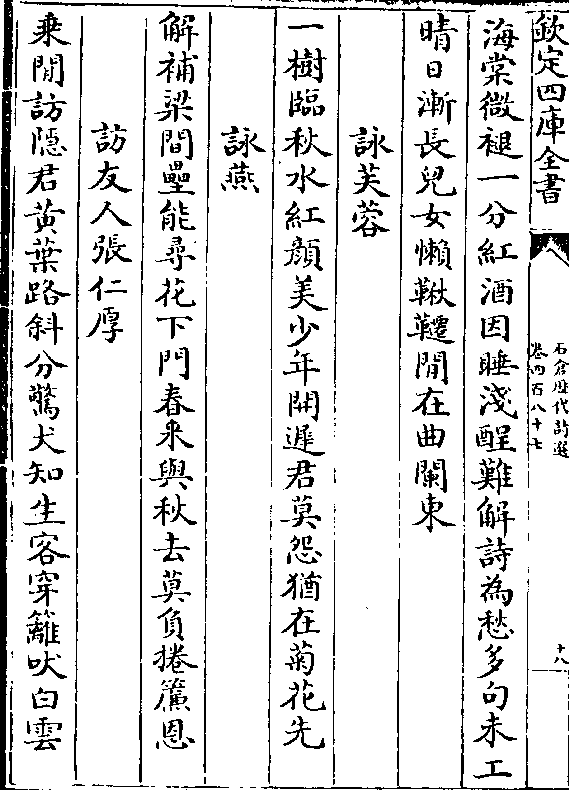 欽定四庫全書
石倉歷代詩選
卷四百八十七
十八
海棠微褪一分紅酒因睡淺酲難解詩為愁多句未工
晴日漸長兒女懶鞦韆閒在曲闌東
詠芙蓉
一樹臨秋水紅顔美少年開遲君莫怨猶在菊花先
詠燕
解補梁間壘能尋花下門春來與秋去莫負捲簾恩
訪友人張仁厚
乘閒訪隱君黃葉路斜分驚犬知生客穿籬吠白雲